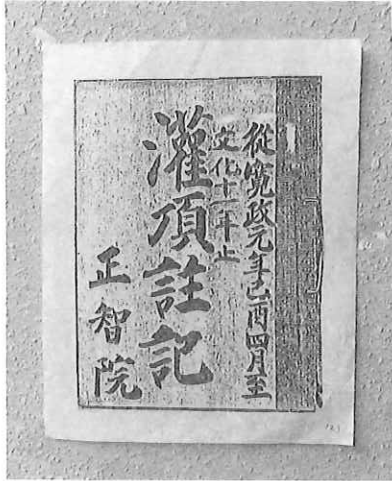 從寛政元年己酉四月至
文化十一年止
灌頂註記
正智院